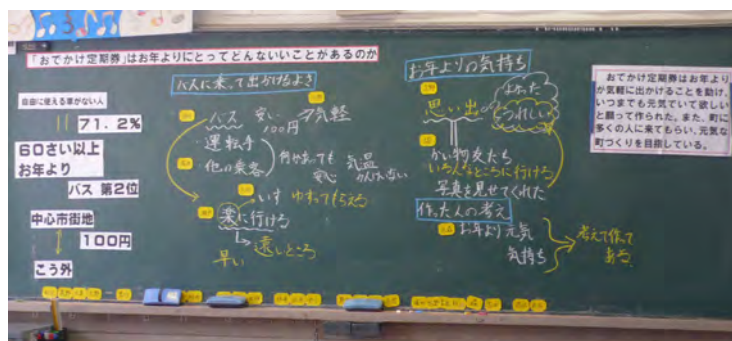 「おでかけ定期券」はお年よりにとってどんないいことがあるのか
自由に使える車がない人
71.2%
60さい以上
お年より
バス 第2位
中心市街地
100円
こう外
バスに乗って出かけるよさ
バス 安い 気軽
100円
運転手
他の乗客
何かあっても
安心
気温
かんけいない
いす ゆずってもらえる
楽に行ける
遠いところ
早い
お年よりの気持ち
よかった
うれしい
思い出
かい物 友だち
いろんなところに行ける
写真を見せてくれた
作った人の考え
お年より元気
気持ち
考えて作って
ある
おでかけ定期券はお年より
が気軽に出かけることを助け、
いつまでも元気でいて欲しい
と願って作られた。また、町に
多くの人に来てもらい、元気な
町づくりを目指している。